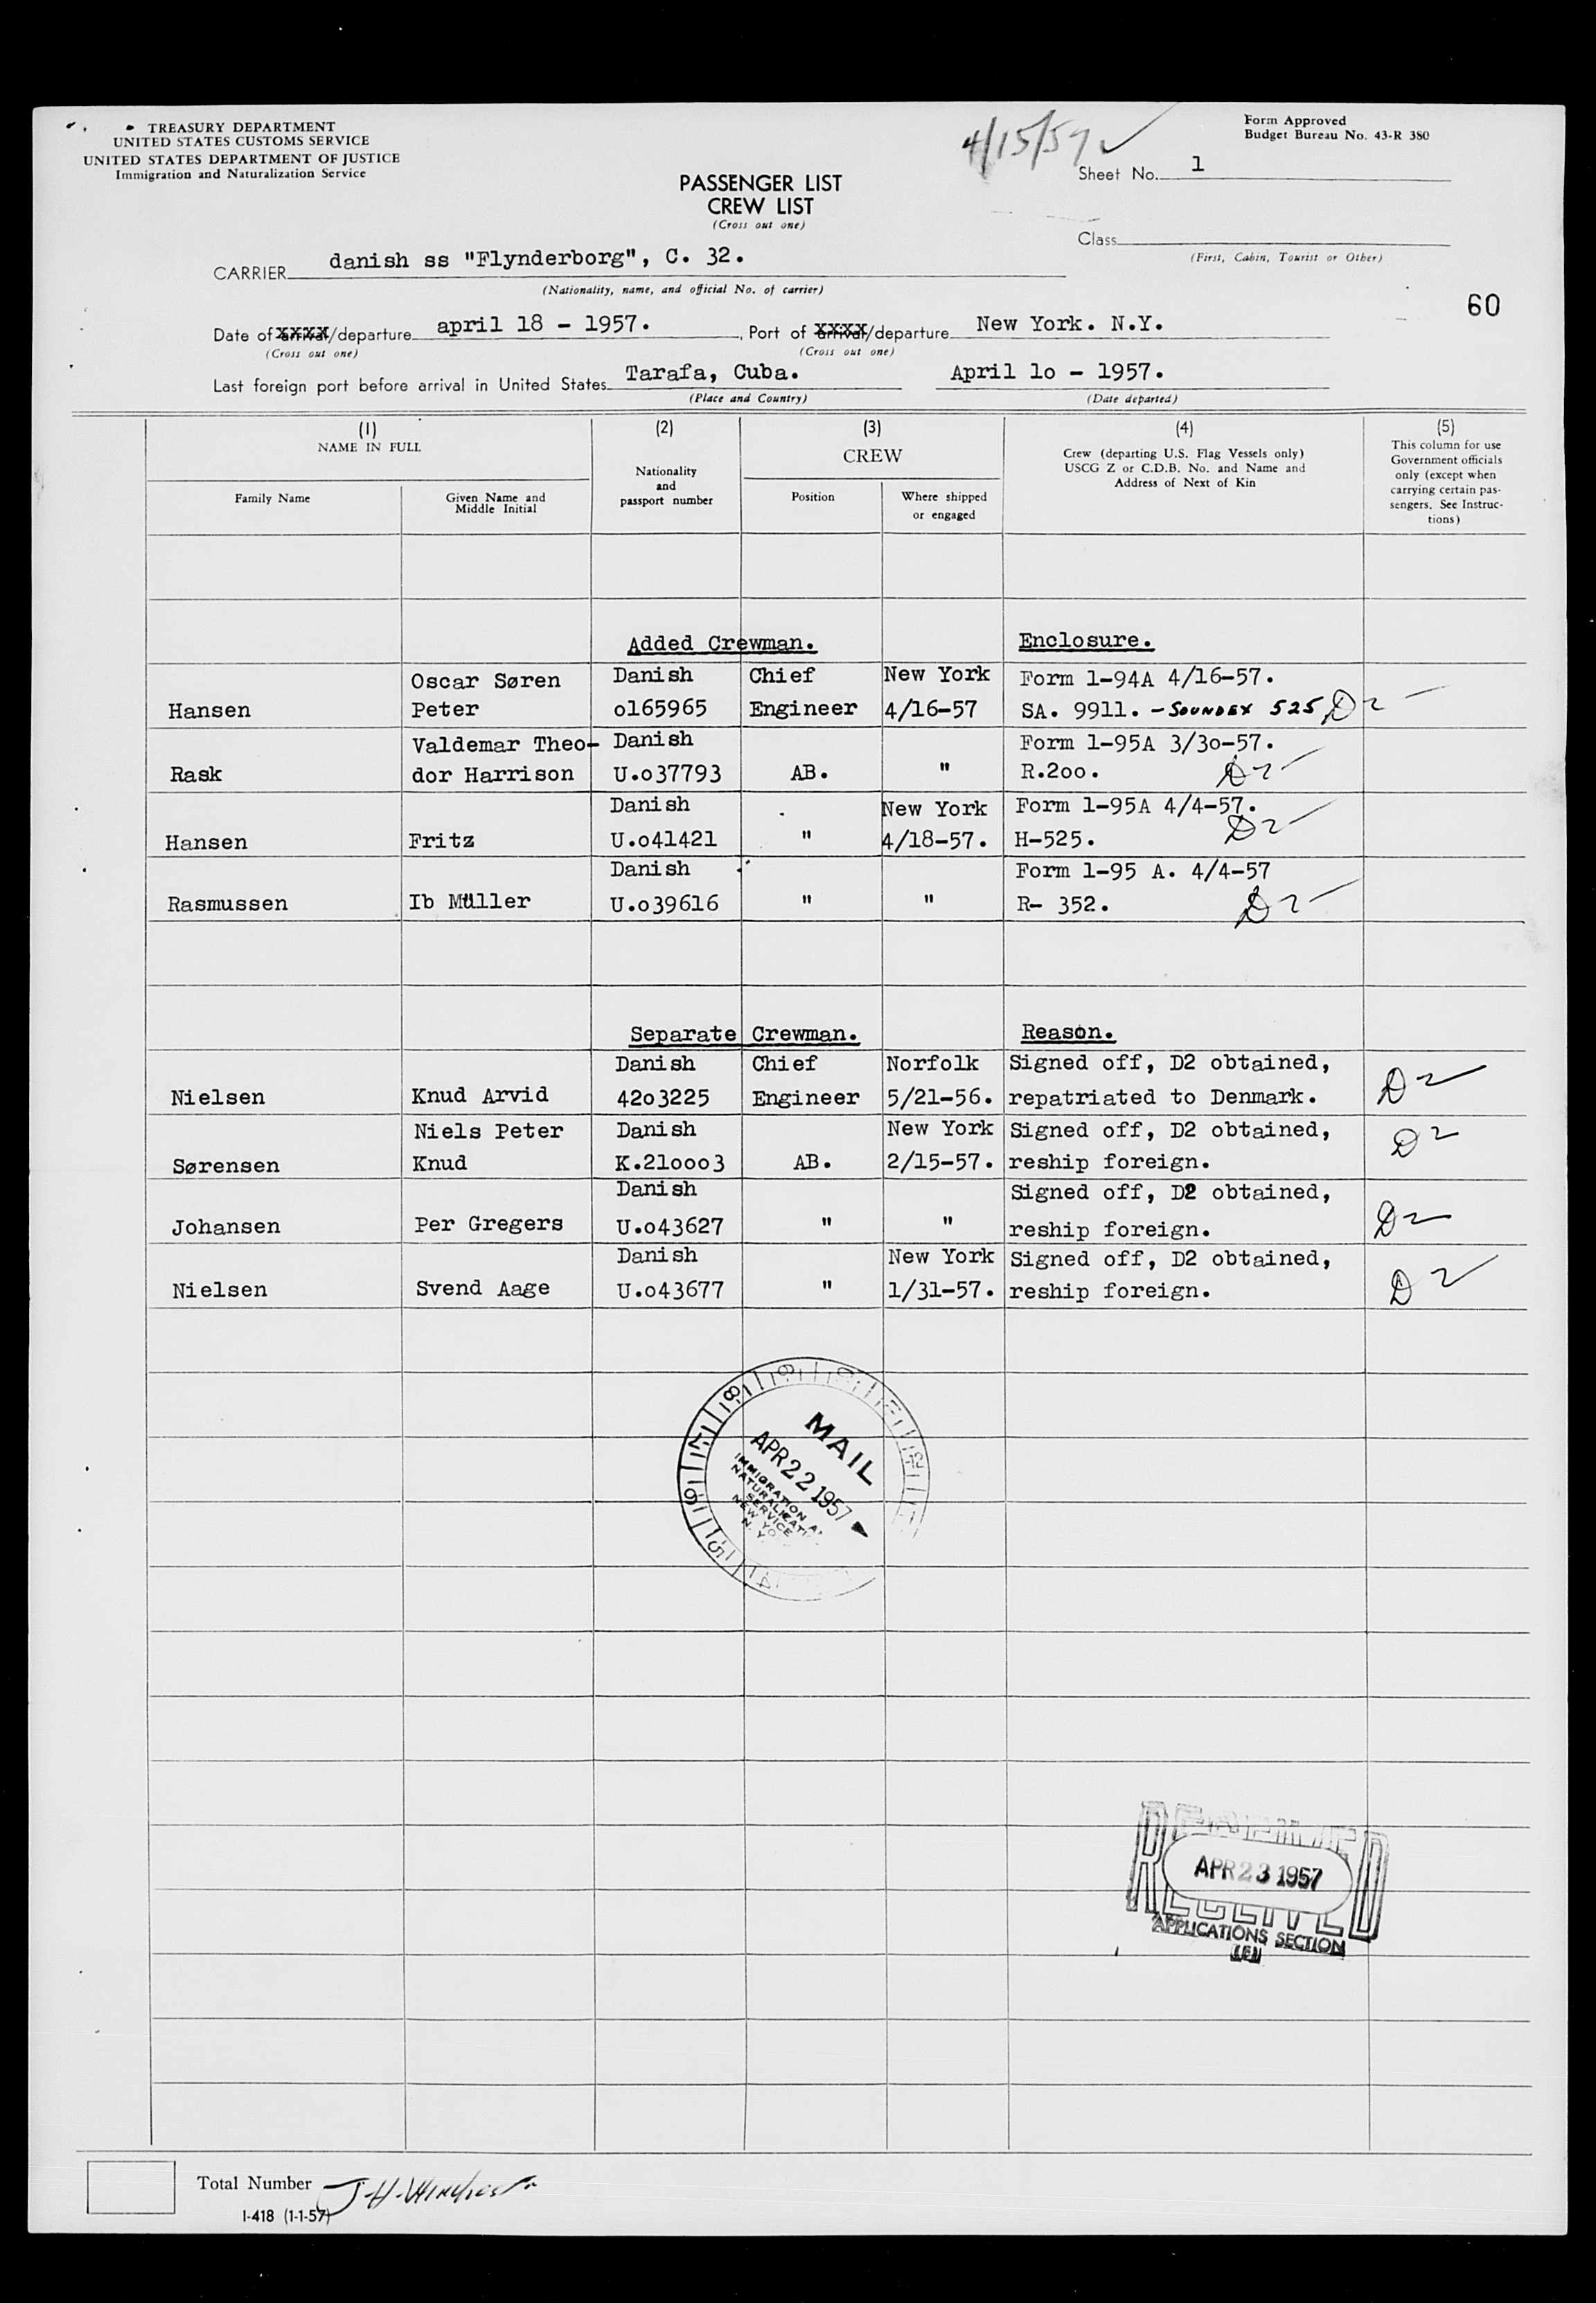 TREASURY DEPARTMENT
UNITED STATES CUSTOMS SERVICE
UNITED STATES DEPARTMENT OF JUSTICE
Immigration and Naturalization Service
4/15/57
Form Approved
Budget Bureau No. 43-R 380
Sheet No. 1
PASSENGER LIST
CREW LIST
(Cross out one)
Class
(First, Cabin, Tourist or Other)
CARRIER danish ss "Flynderborg", C. 32.
(Nationality, name, and official No. of carrier)
60
Date of arrival/departure april 18 - 1957. , Port of arrival/departure New York. N.Y.
(Cross out one) (Cross out one)
Last foreign port before arrival in United States Tarafa, Cuba. April 1o - 1957.
(Place and Country) (Date departed)
(1) (2) (3) (4) (5)
NAME IN FULL
Family Name
Given Name and
Middle Initial
Nationality
and
passport number
CREW
Position
Where shipped
or engaged
Crew (departing U.S. Flag Vessels only)
USCG Z or C.D.B. No. and Name and
Address of Next of Kin
This column for use
Government officials
only (except when
carrying certain pas-
sengers. See Instruc-
tions)
Added Crewman. Enclosure.
Oscar Søren Danish Chief New York Form 1-94A 4/16-57.
Hansen Peter o165965 Engineer 4/16-57 SA. 9911. - SOUNDEX 525 D2
Valdemar Theo- Danish Form 1-95A 3/3o-57.
Rask dor Harrison U.o37793 AB. " R.2oo. D2
Danish New York Form 1-95A 4/4-57.
Hansen Fritz U.o41421 " 4/18-57. H-525. D2
Danish Form 1-95 A. 4/4-57
Rasmussen Ib Müller U.o39616 " " R- 352. D2
Separate Crewman. Reason.
Danish Chief Norfolk Signed off, D2 obtained,
Nielsen Knud Arvid 42o3225 Engineer 5/21-56. repatriated to Denmark. D2
Niels Peter Danish New York Signed off, D2 obtained,
Sørensen Knud K.21ooo3 AB. 2/15-57. reship foreign. D2
Danish Signed off, D2 obtained,
Johansen Per Gregers U.o43627 " " reship foreign. D2
Danish New York Signed off, D2 obtained,
Nielsen Svend Aage U.o43677 " 1/31-57. reship foreign. D2
MAIL
APR 22 1957
IMMIGRATION
SERVICE
RECEIVED
APR 23 1957
APPLICATIONS SECTION
Total Number
I-418 (1-1-57)